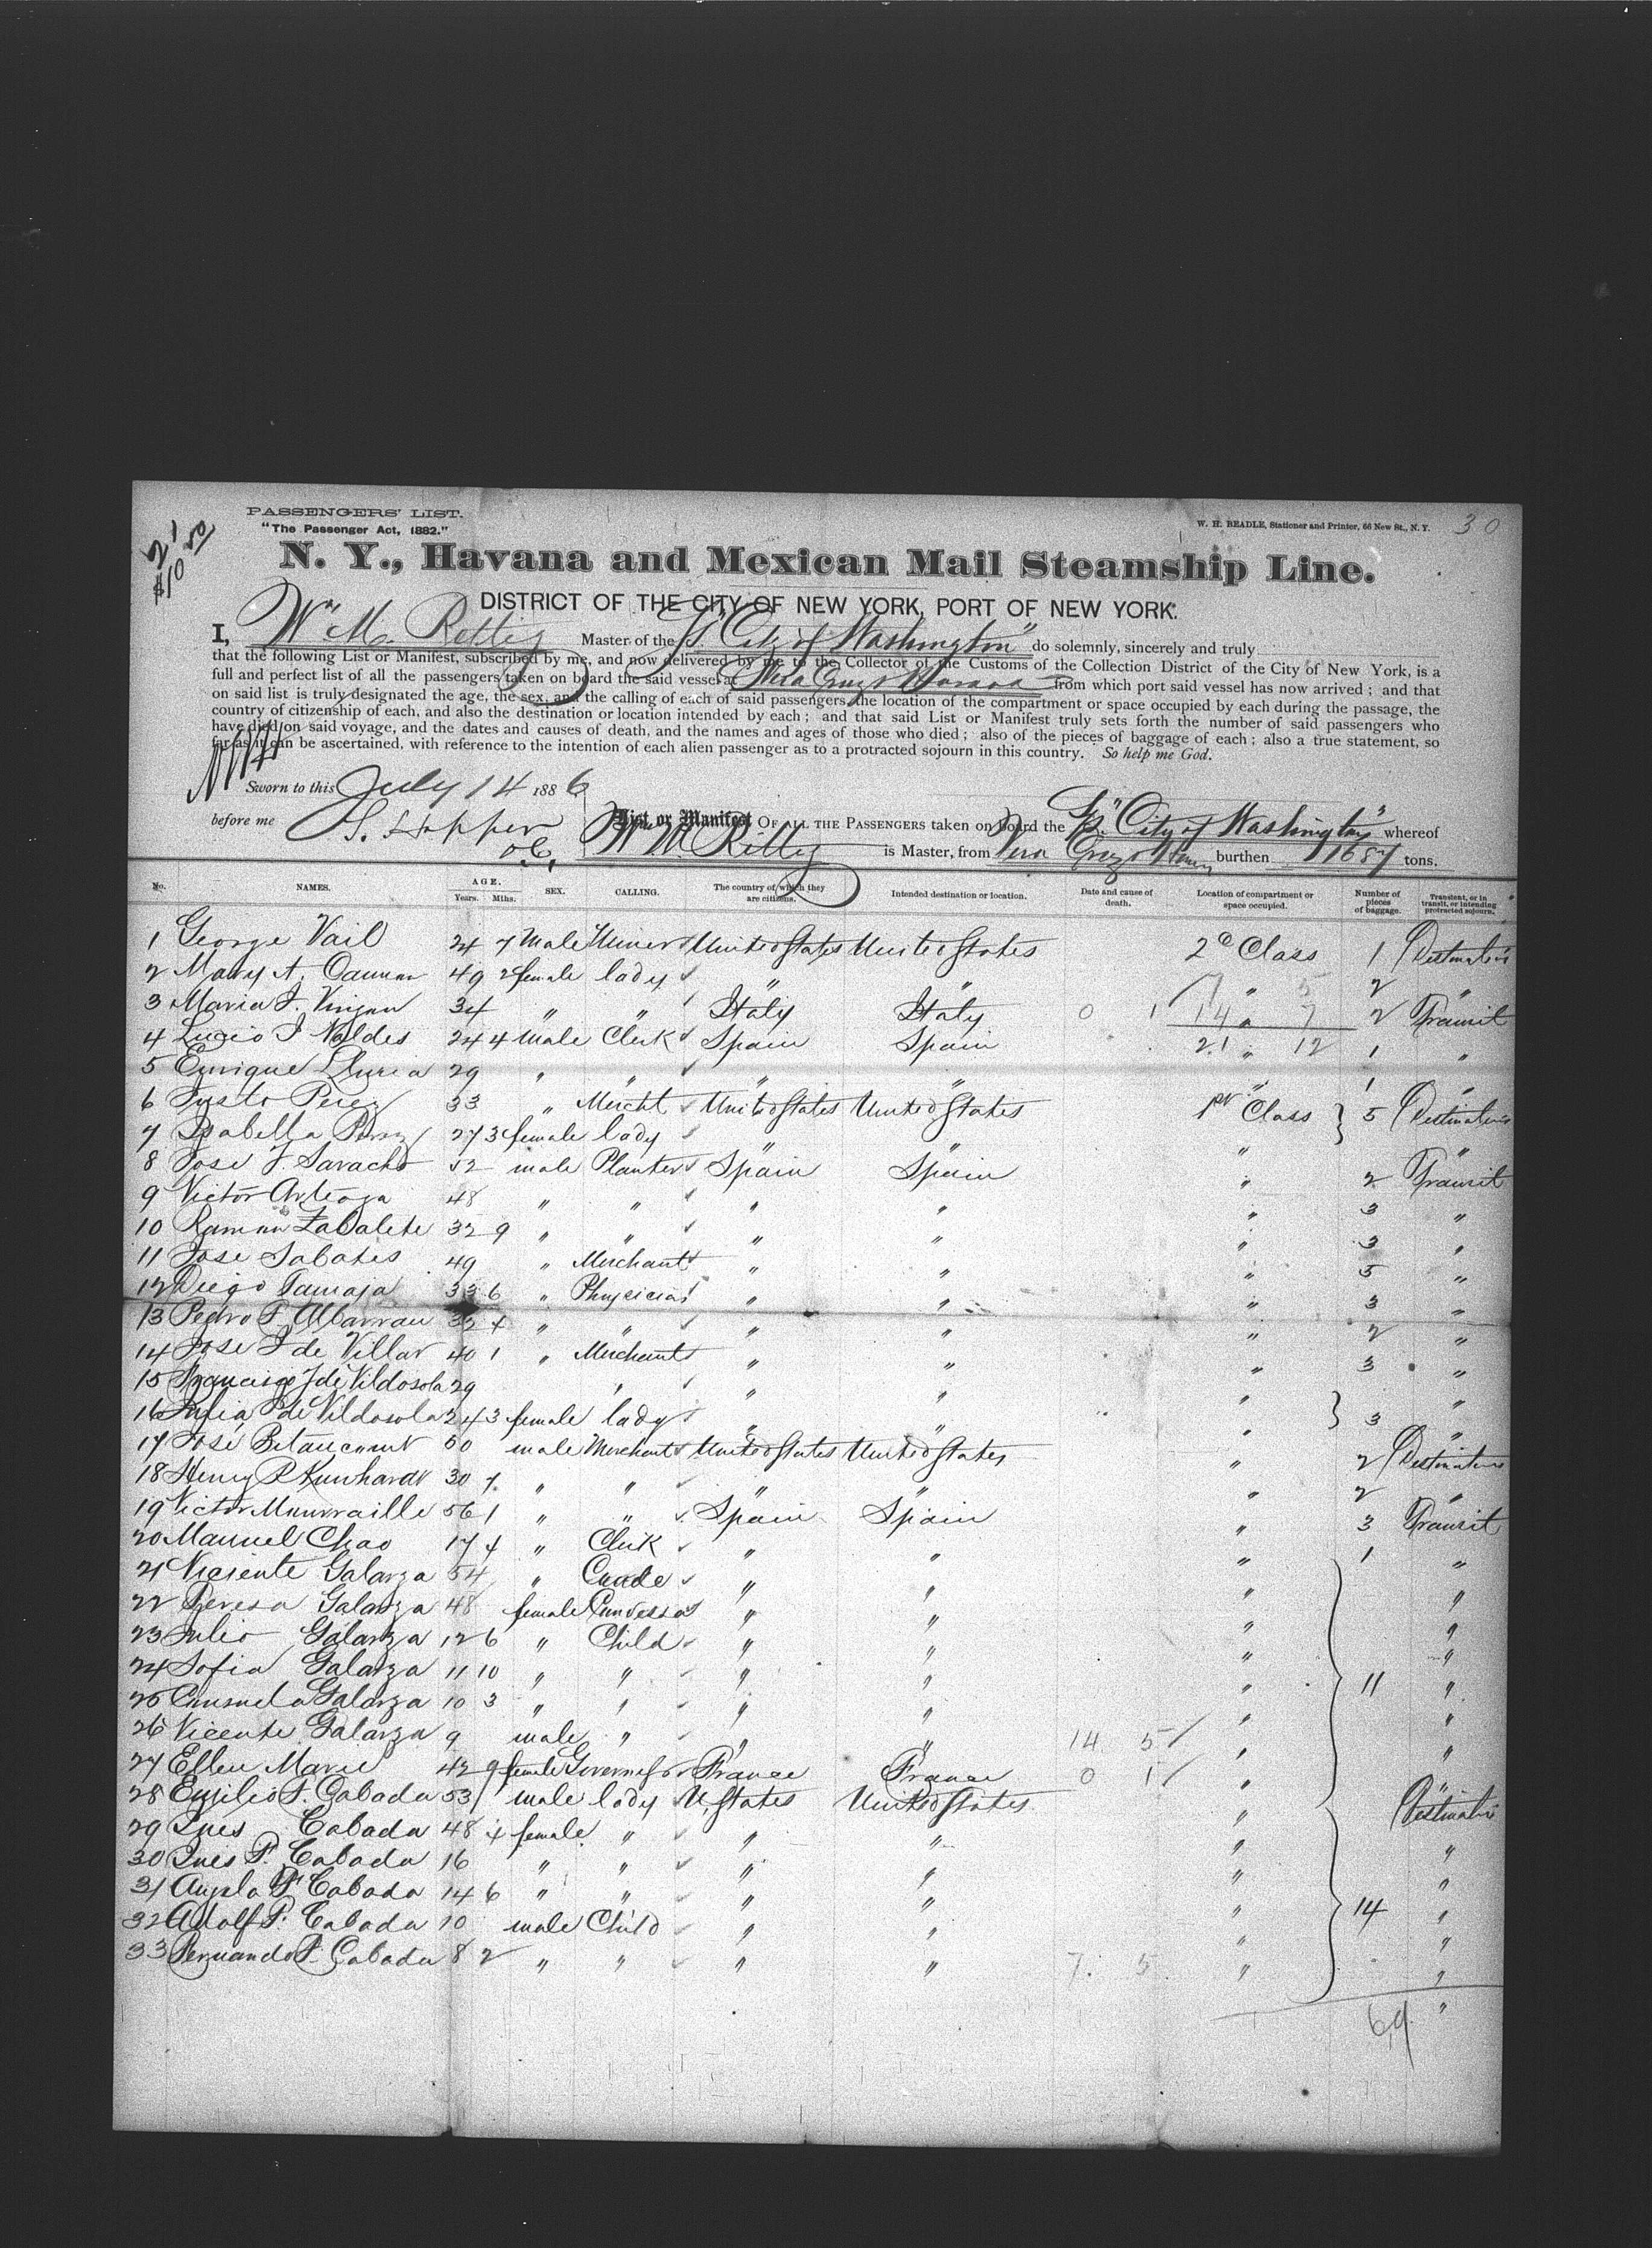 PASSENGERS' LIST.
"The Passenger Act, 1882."
W. H. BEADLE, Stationer and Printer, 66 New St., N. Y.
30
21
$10 50
N. Y., Havana and Mexican Mail Steamship Line.
DISTRICT OF THE CITY OF NEW YORK, PORT OF NEW YORK.
I, Wm M. Rettig Master of the Ss "City of Washington" do solemnly, sincerely and truly
that the following List or Manifest, subscribed by me, and now delivered by me to the Collector of the Customs of the Collection District of the City of New York, is a
full and perfect list of all the passengers taken on board the said vessel at Vera Cruz & Havana from which port said vessel has now arrived; and that
on said list is truly designated the age, the sex, and the calling of each of said passengers, the location of the compartment or space occupied by each during the passage, the
country of citizenship of each, and also the destination or location intended by each; and that said List or Manifest truly sets forth the number of said passengers who
have died on said voyage, and the dates and causes of death, and the names and ages of those who died; also of the pieces of baggage of each; also a true statement, so
far as it can be ascertained, with reference to the intention of each alien passenger as to a protracted sojourn in this country. So help me God.
Sworn to this July 14 1886
before me S. Hopper
D.C.
List or Manifest OF ALL THE PASSENGERS taken on board the Ss. "City of Washington" whereof
Wm M. Rettig is Master, from Vera Cruz & burthen 1687 tons.
No. NAMES. AGE. Years. Mths. SEX. CALLING. The country of which they are citizens. Intended destination or location. Date and cause of death. Location of compartment or space occupied. Number of pieces of baggage. Transient, or in transit, or intending protracted sojourn.
1 George Vail 24 7 Male Miner United States United States 2d Class 1 Destination
2 Mary A. 49 2 female lady " " " 2 "
3 Maria F. 34 " " Italy Italy 0 1 14 " 7 2 Transit
4 Lucio F Valdes 24 4 male Clerk Spain Spain 21 " 12 1 "
5 Enrique Lluria 29 " " " " " 1 "
6 Justo Perez 33 " Mercht United States United States 1st Class } 5 Destination
7 Isabella Perez 27 3 female lady " " " "
8 Jose F. Saracho 52 male Planter Spain Spain " 2 Transit
9 Victor Arteaga 48 " " " " " 3 "
10 Ramon Zabalete 32 9 " " " " " 3 "
11 Jose Sabates 49 " Merchant " " " 5 "
12 Diego Tamayo 33 6 " Physician " " " 3 "
13 Pedro P. Albarran 32 4 " " " " " 2 "
14 Jose F de Villar 40 1 " Merchant " " " 3 "
15 Francisco J de Vildosola 29 " " " " "
16 Julia P de Vildosola 24 3 female lady " " " } 3 "
17 Jose Betancourt 50 male Merchant United States United States " 2 Destination
18 Henry P Kunhardt 30 7 " " " " " 2 "
19 Victor 56 1 " " Spain Spain " 3 Transit
20 Manuel Chao 17 4 " Clerk " " " 1 "
21 Vicente Galarza 54 " Conde " " " "
22 Teresa Galarza 48 female Condessa " " " "
23 Julio Galarza 12 6 " Child " " " "
24 Sofia Galarza 11 10 " " " " " } 11 "
25 Consuela Galarza 10 3 " " " " " "
26 Vicente Galarza 9 male " " " 14 5 " "
27 Ellen Marie 42 9 female Governess France France 0 1 " "
28 Emilio F. Cabada 53 male lady U. States United States " Destination
29 Ines Cabada 48 4 female " " " " "
30 Ines P. Cabada 16 " " " " " "
31 Angela P Cabada 14 6 " " " " " } 14 "
32 Adolf P. Cabada 10 male Child " " " "
33 Fernando P. Cabada 8 2 " " " " 7. 5. " "
69 "